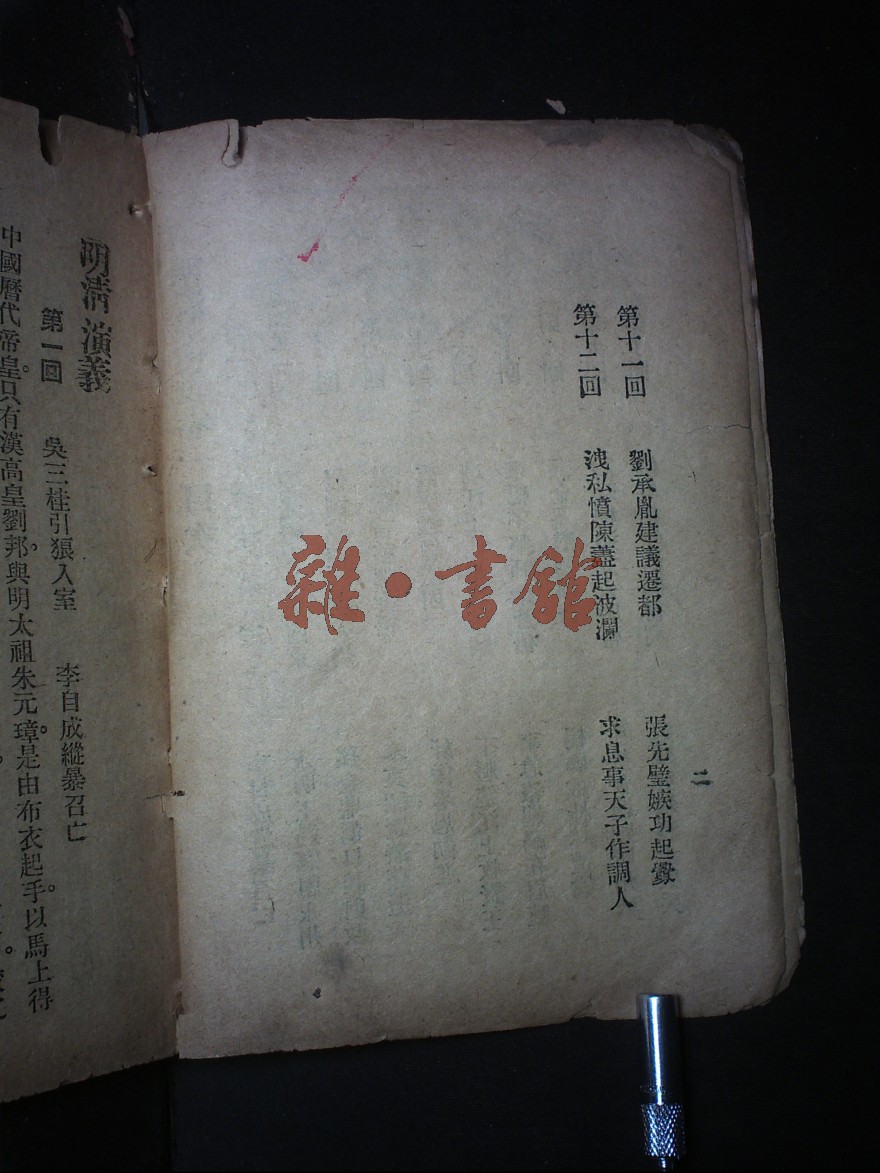 二
第十一回 劉承胤建議遷都 張先璧嫉功起釁
第十二回 洩私憤陳蓋起波瀾 求息事天子作調人
雜·書館
明清演義
第一回 吳三桂引狼入室 李自成縱暴召亡
中國曆代帝皇。只有漢高皇劉邦。與明太祖朱元璋。是由布衣起手。以馬上得